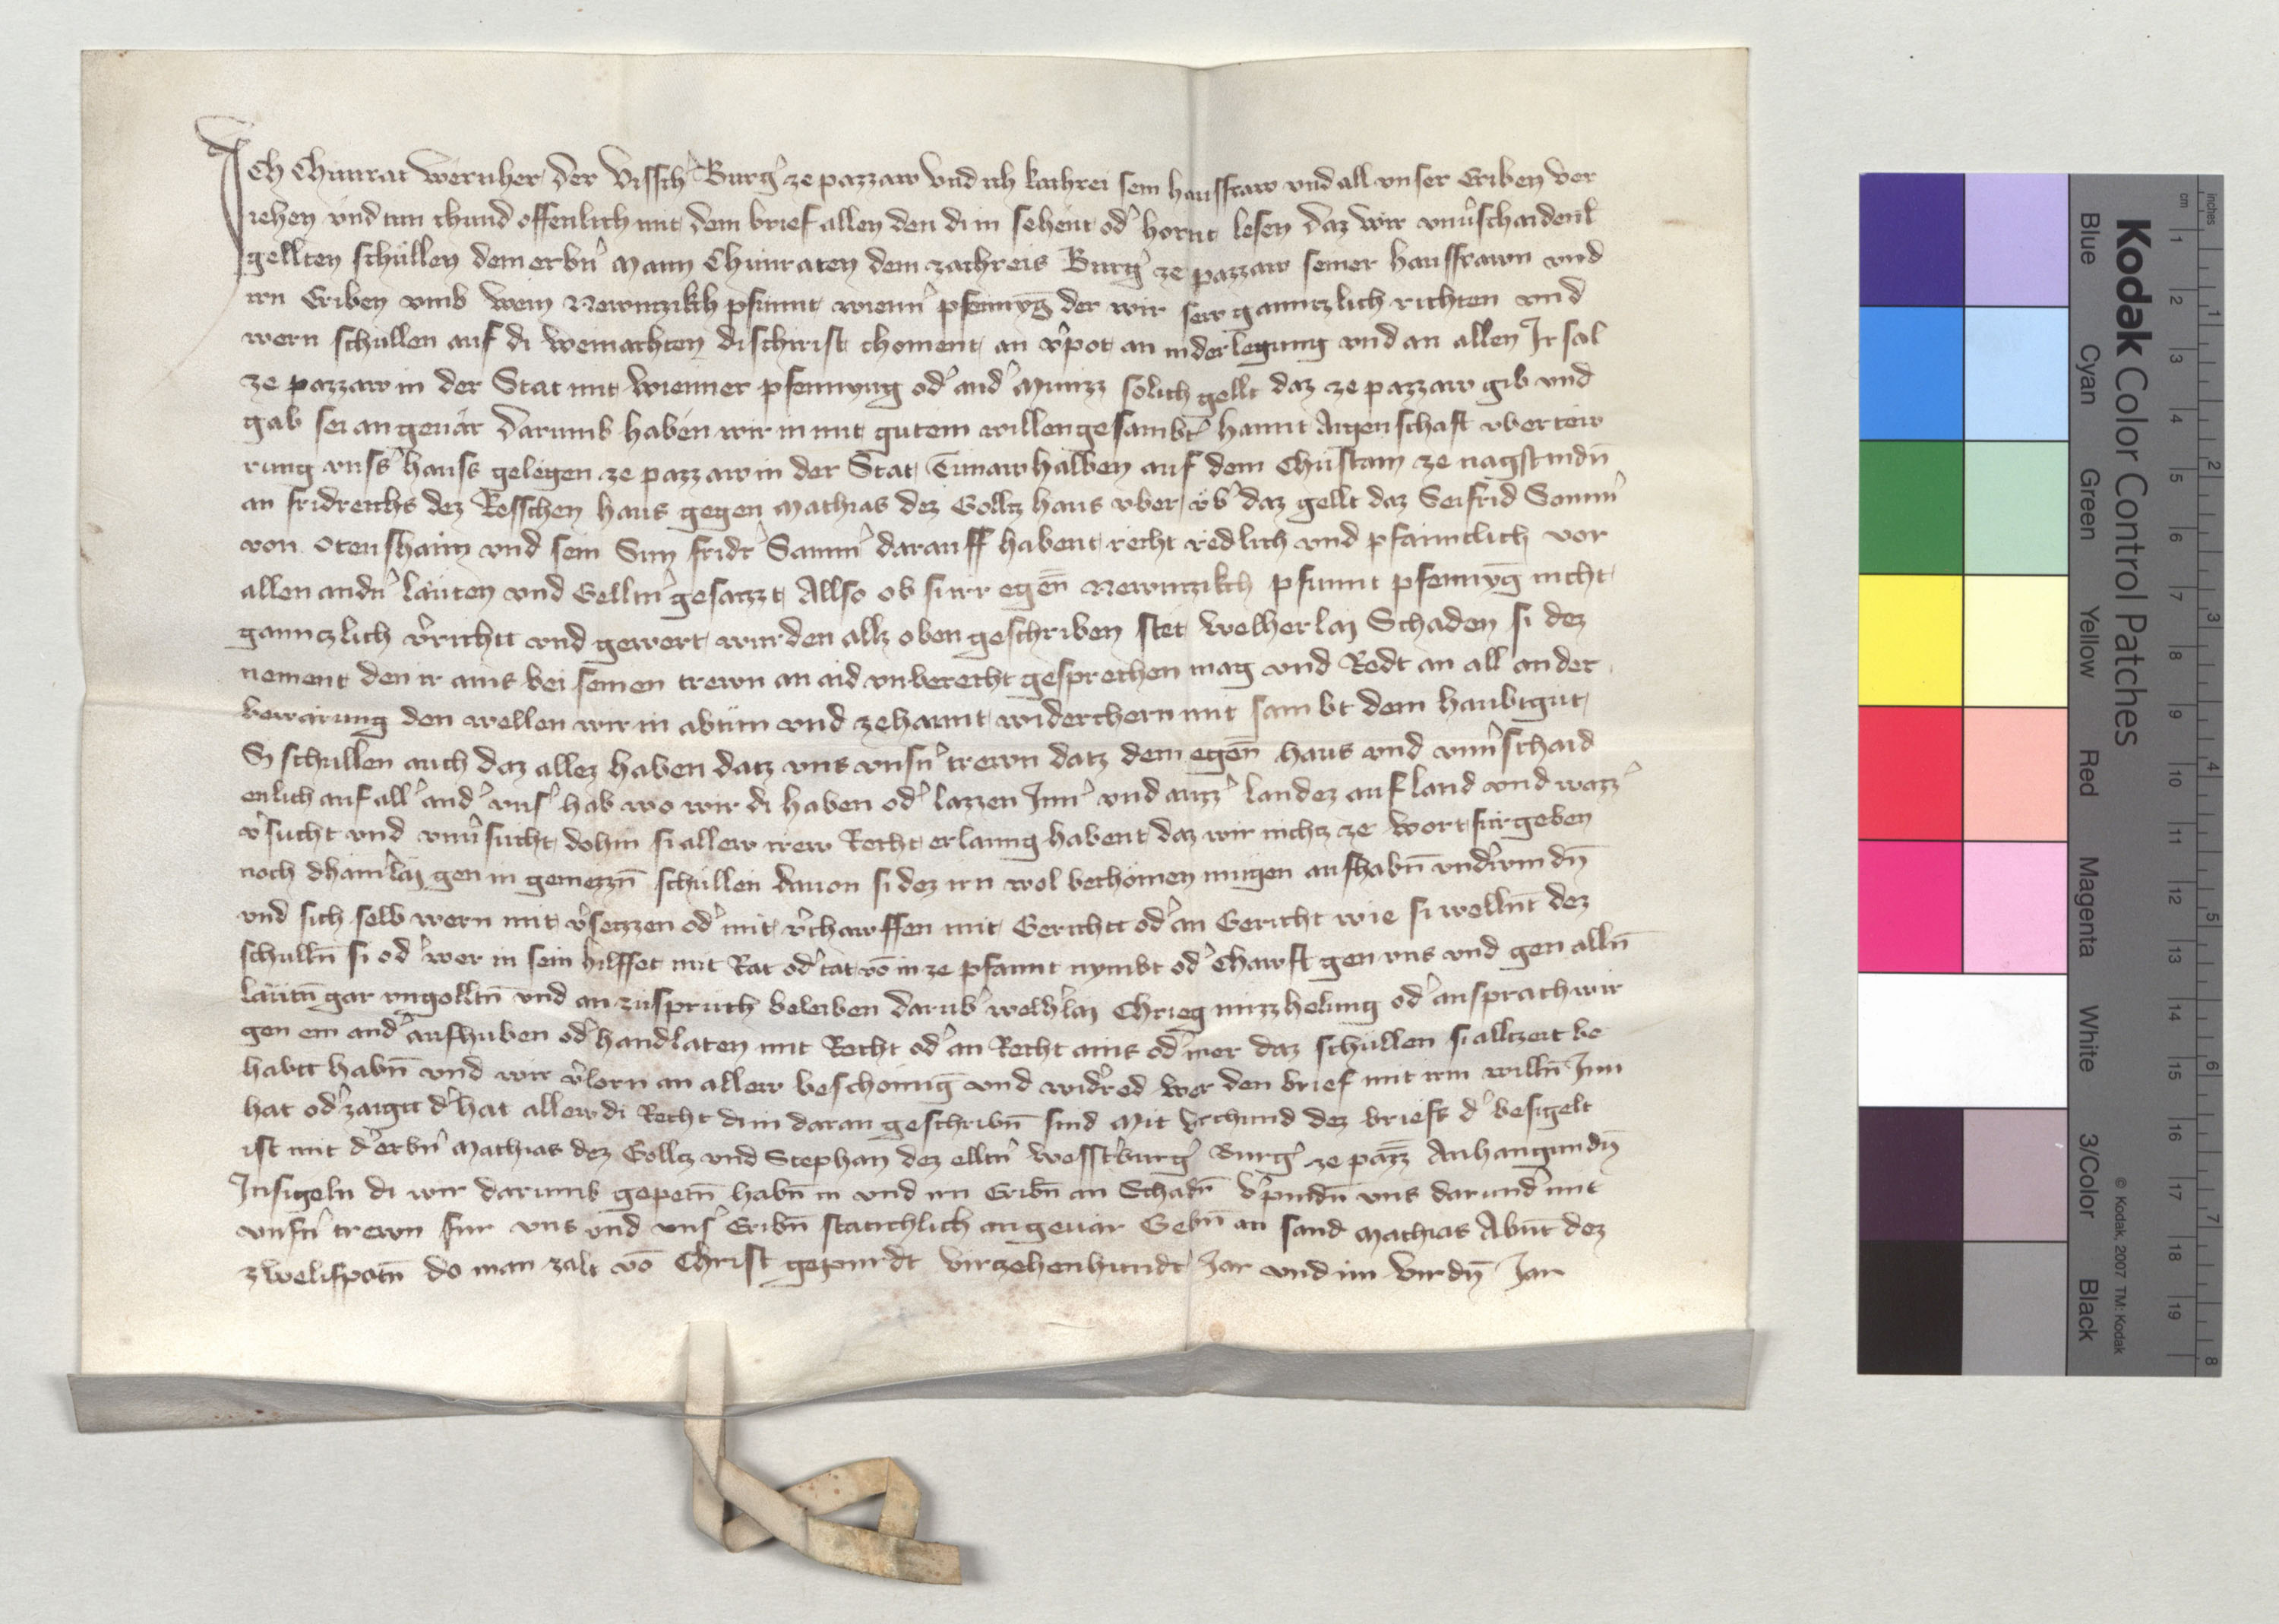 Ich Chunrat Wernher der Vissch' Burg' ze pazzaw vnd ich kathrei sein hausfraw vnd all vnser Eriben ver
iehen vnd tun chund offenlich mit dem brief allen den di in sehent od' hornt lesen daz wir vnu'schaidenl
gellten schüllen dem erbn' Mann Chunraten dem zachreis Burg' ze pazzaw seiner hausfrawn vnd
irn Eriben vmb Wein Newntzikh pfunnt wienn' pfennyg der wir sew ganntzlich richten vnd
wern schullen auf di Weinachten di schirist choment an v'pot an niderlegung vnd an allen Irsal
ze pazzaw in der Stat mit Wienner pfennyng od' and' Munizz solich gellt daz ze pazzaw gib vnd
gab sei an geuär Darumb haben wir in mit gutem willen gesambt' hannt Aigenschaft vberteiw
rung vnss' hauss gelegen ze pazzaw in der Stat Tunawhalben auf dem Chustain ze nagst indn
an fridreichs dez Resschen haus gegen Mathias dez Golltz haus vber vb' daz gellt daz Seifrid Samn'
von Otenshaim vnd sein Sun fridr' Samn' darauff habent recht redlich vnd pfantlich vor
allen andn' läuten vnd Gelltn' gesatzt Allso ob si irr egen Newntzikch pfunnt pfennyg nicht
ganntzlich v'richtt vnd gewert wurden allz oben geschriben stet Welherlai Schaden si dez
nement den ir ains bei seinen trewn an aid vnberecht gesprechen mag vnd Redt an all ander
bewärung den wellen wir in abtun vnd zehannt widerchern mit sambt dem haubtgut
Si schullen auch daz allez haben datz vns vnsn' trewn datz dem egen haus vnd vnu'schaid
enlich auf all' and' vnss' hab wo wir di haben od' lazzen Inn' vnd auzz' landez auf land vnd wazz'
v'sucht vnd vnu'sucht dohin si allew irew Recht erlanng habent daz wir nichtz ze wort fürgeben
noch dhainlai gen in gemezzn schullen dauon si dez irn wol bechömen mugen aufhabn vnd'windn
vnd sich selb wern mit v'setzzen od' mit v'chawffen mit Gerichtt od' an Gericht wie si wellnt dez
schulln si od' wer in sein hilffet mit Rat od' tat vo in ze pfannt nymbt od' Chawft gen vns vnd gen alln
läutn gar vngolltn vnd an züspruch beleiben darub' welh'lai Chrieg mizzhelung od' ansprach wir
gen ein and' aufhuben od' handlaten mit Recht od' an Recht ains od' mer daz schullen si alltzeit be
habtt habn vnd wir v'lorn an allew beschönnig vnd wid'red wer den brief mit irm willn Inn
hat od' zaigtt d' hat allew di Recht di in daran geschribn sind Mit Vrchund dez briefs d' besigelt
ist mit d' erbn' Mathias dez Golltz vnd Stephan dez elltn' Wesst'burg' Burg' ze pazz Anhangundn
Insigeln di wir darumb gepetn habn in vnd irn Eribn an Schadn v'pindn vns darund' mit
vnsn' trewn fur vns vnd vnss' Eribn stätichlich an geuär Gebn an sand Mathias Abnt dez
zwelifpotn do man zalt vo Christ gepurdt virzehenhundt Jar vnd im virdn Jar
Kodak Color Control Patches
Blue Cyan Green Yellow Red Magenta White 3/Color Black
© Kodak, 2007 TM: Kodak
cm 1 2 3 4 5 6 7 8 9 10 11 12 13 14 15 16 17 18 19
inches 1 2 3 4 5 6 7 8